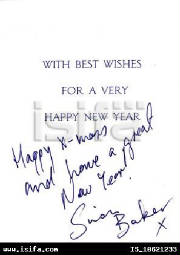 WITH BEST WISHES
FOR A VERY
HAPPY NEW YEAR
Happy x-mass
and have a great
New Year!
Simon
Baker
x
www.isifa.com
IS_10621233